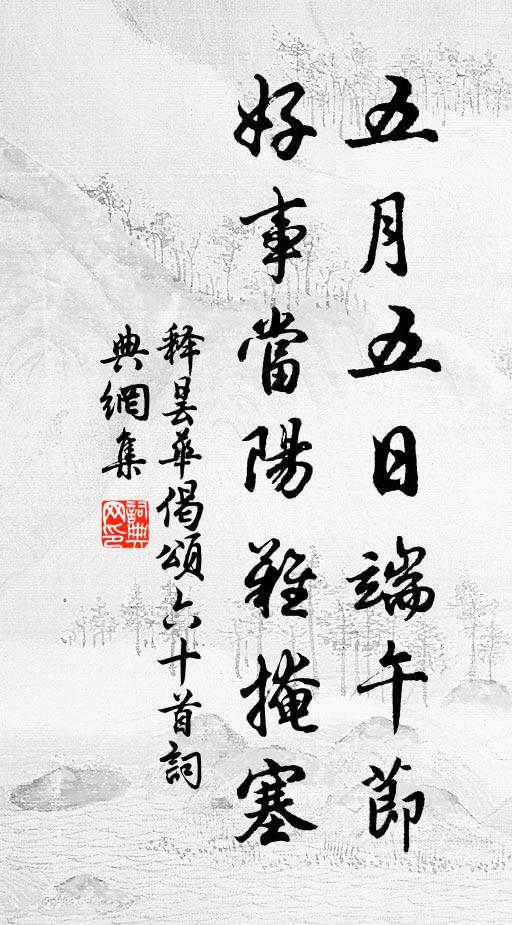 五月五日端午節
好事當陽難掩塞
释曇華偈頌六十首詞
典網集
詞典
网印